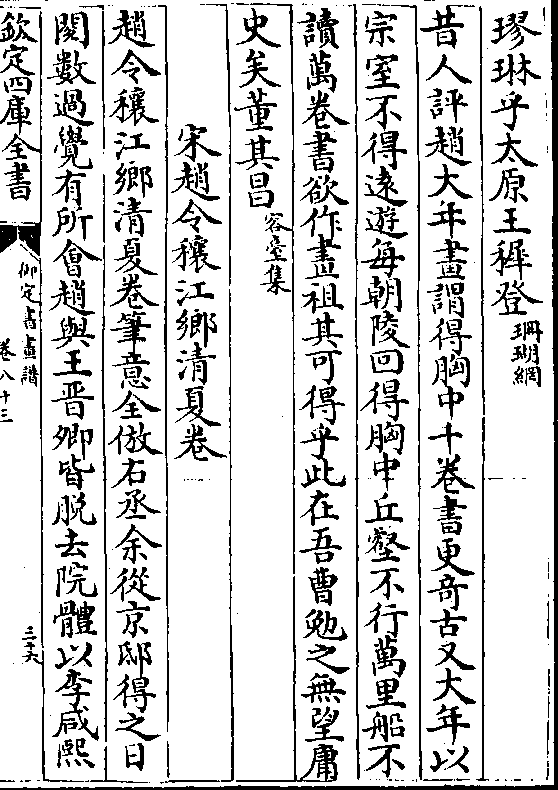 璆琳乎太原王穉登珊瑚網
昔人評趙大年畫謂得胸中十卷書更奇古又大年以
宗室不得遠遊每朝陵回得胸中丘壑不行萬里船不
讀萬卷書欲作畫祖其可得乎此在吾曹勉之無望庸
史矣董其昌容臺集
宋趙令穰江鄉清夏卷
趙令穰江鄉清夏卷筆意全倣右丞余從京邸得之日
閱數過覺有所會趙與王晋卿皆脫去院體以李咸熙
欽定四庫全書
御定書畫譜
卷八十三
三十六